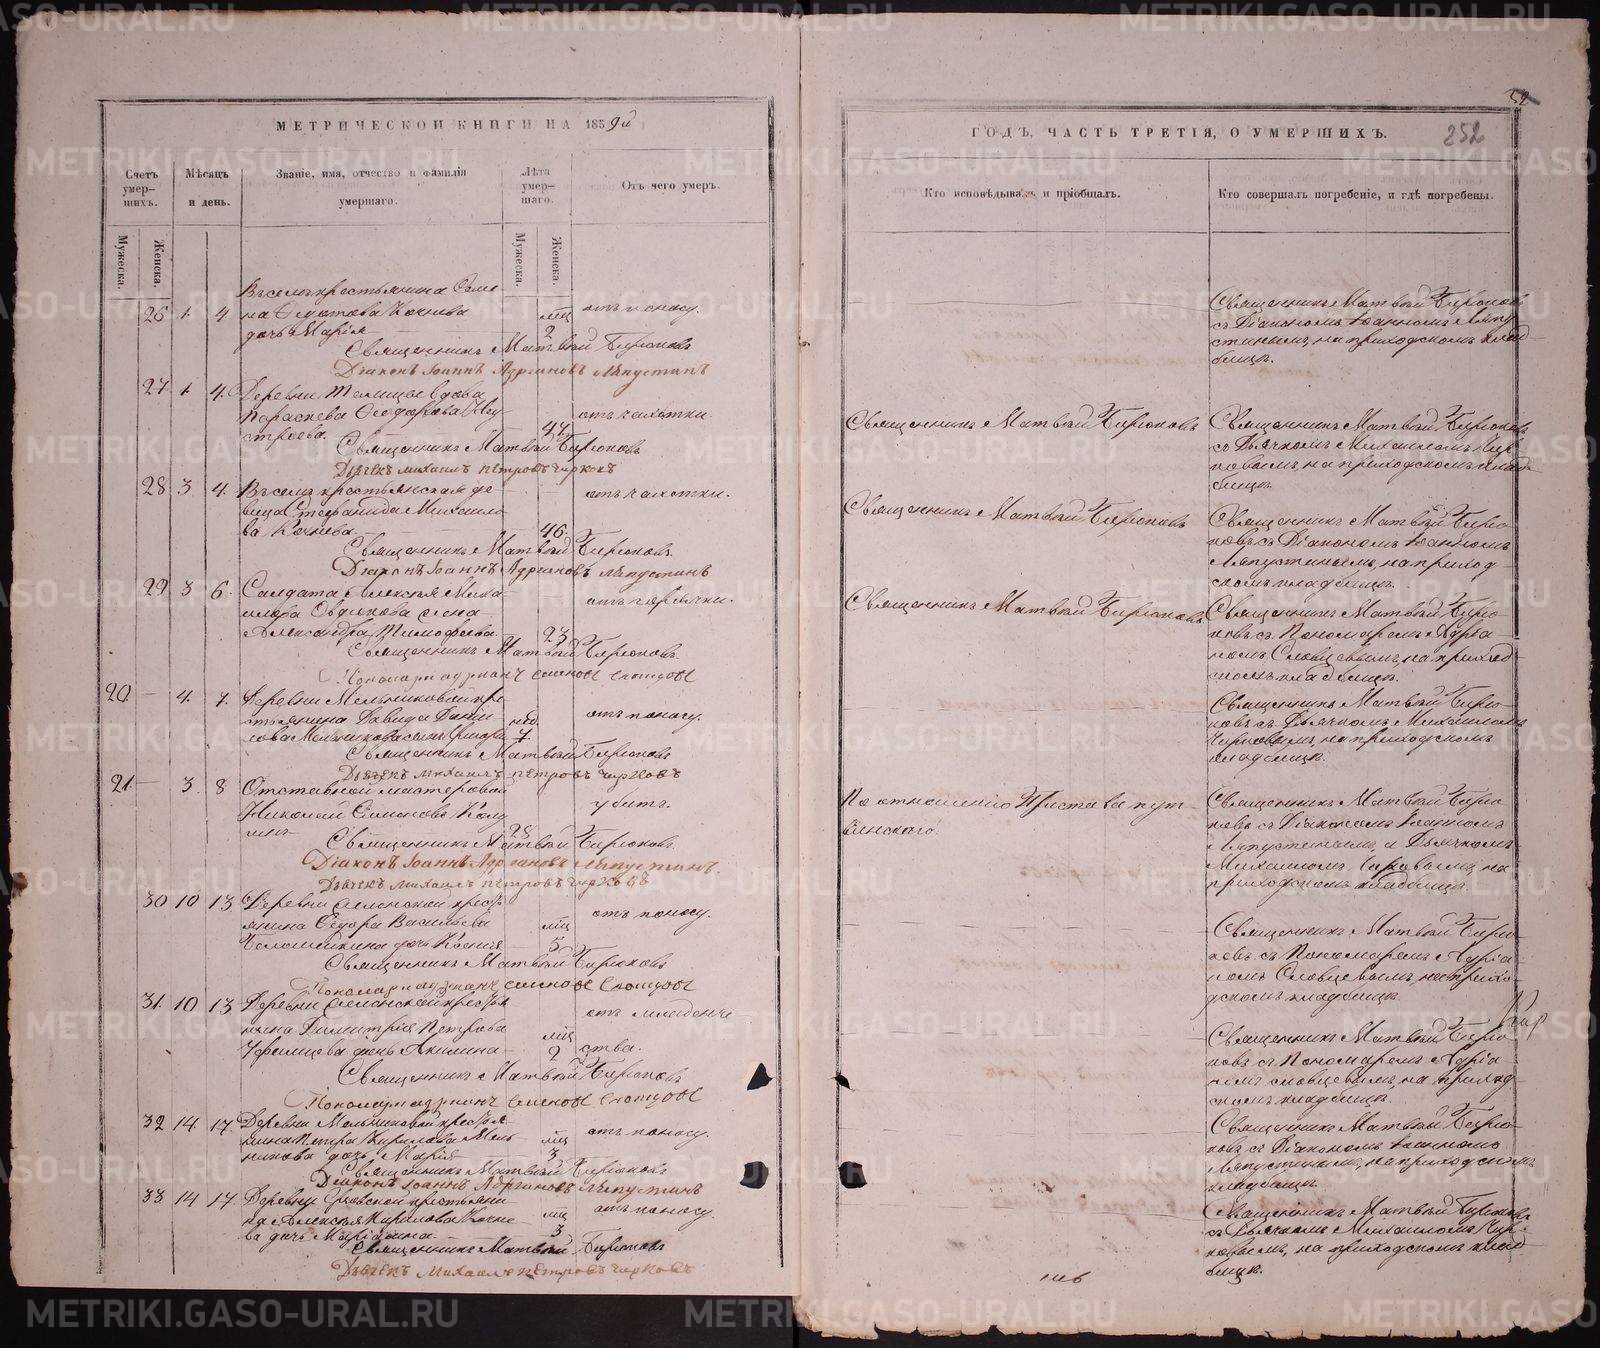 МЕТРИЧЕСКОЙ КНИГИ НА 1859й
Счетъ умер- шихъ.
Мѣсяцъ и день.
Званіе, имя, отчество и фамилія умершаго.
Лѣта умер- шаго.
Отъ чего умеръ.
Мужеска.
Женска.
Мужеска.
Женска.
26 1 4
на Федотова Кочнева
дочь Марія
мц 2
отъ поносу.
Священникъ Матвѣй Бирюковъ
Діаконъ Іоаннъ Адріановъ Ляпустинъ
27 1 4 Деревни вдова
Параскева Ѳеодорова
44
отъ чахотки.
Священникъ Матвѣй Бирюковъ
Дьячекъ Михаилъ Петровъ Чирковъ
28 3 4 Въ селѣ крестьянская де-
вица Стефанида Михайло-
ва Кочнева
46
отъ чахотки.
Священникъ Матвѣй Бирюковъ.
Діаконъ Іоаннъ Адріановъ Ляпустинъ
29 3 6 Солдата Алексѣя Миха-
жена
Александра Тимофеева
23
отъ горячки.
Священникъ Матвѣй Бирюковъ.
Пономарь Адрианъ Словцовъ
20 4 7 Деревни Мельниковой кре-
стьянина Давида Дані-
лова Мельникова сынъ
нед. 7
отъ поносу.
Священникъ Матвѣй Бирюковъ
Дьячекъ Михаилъ Петровъ Чирковъ
21 3 8 Отставной мастеровой
Николай Симоновъ
28
убитъ.
Священникъ Матвѣй Бирюковъ.
Діаконъ Іоаннъ Адріановъ Ляпустинъ.
Дьячекъ Михаилъ Петровъ Чирковъ
30 10 13 Деревни крестья-
нина Ѳедора Васильева
дочь Ксенія
мц 5
отъ поносу.
Священникъ Матвѣй Бирюковъ
Пономарь Адрианъ Словцовъ
31 10 13 Деревни крестья-
нина Димитрія Петрова
дочь Акилина
мц 2
отъ младенче-
ства.
Священникъ Матвѣй Бирюковъ
Пономарь Адрианъ Словцовъ
32 14 17 Деревни Мельниковой крестья-
нина Петра Кирилова Мель-
никова дочь Марія
мц 3
отъ поносу.
Священникъ Матвѣй Бирюковъ
Діаконъ Іоаннъ Адріановъ Ляпустинъ
33 14 17 Деревни крестьяни-
на Алексѣя Кирилова Кочне-
ва дочь
мц 3
отъ поносу.
Священникъ Матвѣй Бирюковъ
Дьячекъ Михаилъ Петровъ Чирковъ
52
252
ГОДЪ, ЧАСТЬ ТРЕТІЯ, О УМЕРШИХЪ.
Кто исповѣдывалъ и пріобщалъ.
Кто совершалъ погребеніе, и гдѣ погребены.
Священникъ Матвѣй Бирюковъ
съ Діакономъ Іоанномъ Ляпу-
стинымъ, на приходскомъ клад-
бищѣ.
Священникъ Матвѣй Бирюковъ
Священникъ Матвѣй Бирюковъ
съ Дьячкомъ Михаиломъ Чир-
ковымъ, на приходскомъ клад-
бищѣ.
Священникъ Матвѣй Бирюковъ
Священникъ Матвѣй Бирю-
ковъ съ Діакономъ Іоанномъ
Ляпустинымъ, на приход-
скомъ кладбищѣ.
Священникъ Матвѣй Бирюковъ
Священникъ Матвѣй Бирю-
ковъ съ Пономаремъ Адріа-
номъ Словцевымъ, на приход-
скомъ кладбищѣ.
Священникъ Матвѣй Бирю-
ковъ съ Дьячкомъ Михаиломъ
Чирковымъ, на приходскомъ
кладбищѣ.
По отношенію Пристава
Священникъ Матвѣй Бирю-
ковъ съ Діакономъ Іоанномъ
Ляпустинымъ, и Дьячкомъ
Михаиломъ Чирковымъ, на
приходскомъ кладбищѣ.
Священникъ Матвѣй Бирю-
ковъ съ Пономаремъ Адріа-
номъ Словцевымъ, на прихо-
дскомъ кладбищѣ.
Священникъ Матвѣй Бирю-
ковъ съ Пономаремъ Адріа-
номъ Словцевымъ, на приход-
скомъ кладбищѣ.
Священникъ Матвѣй Бирю-
ковъ съ Діакономъ Іоанномъ
Ляпустинымъ, на приходскомъ
кладбищѣ.
Священникъ Матвѣй Бирюковъ
съ Дьячкомъ Михаиломъ Чир-
ковымъ, на приходскомъ клад-
бищѣ.
METRIKI.GASO-URAL.RU